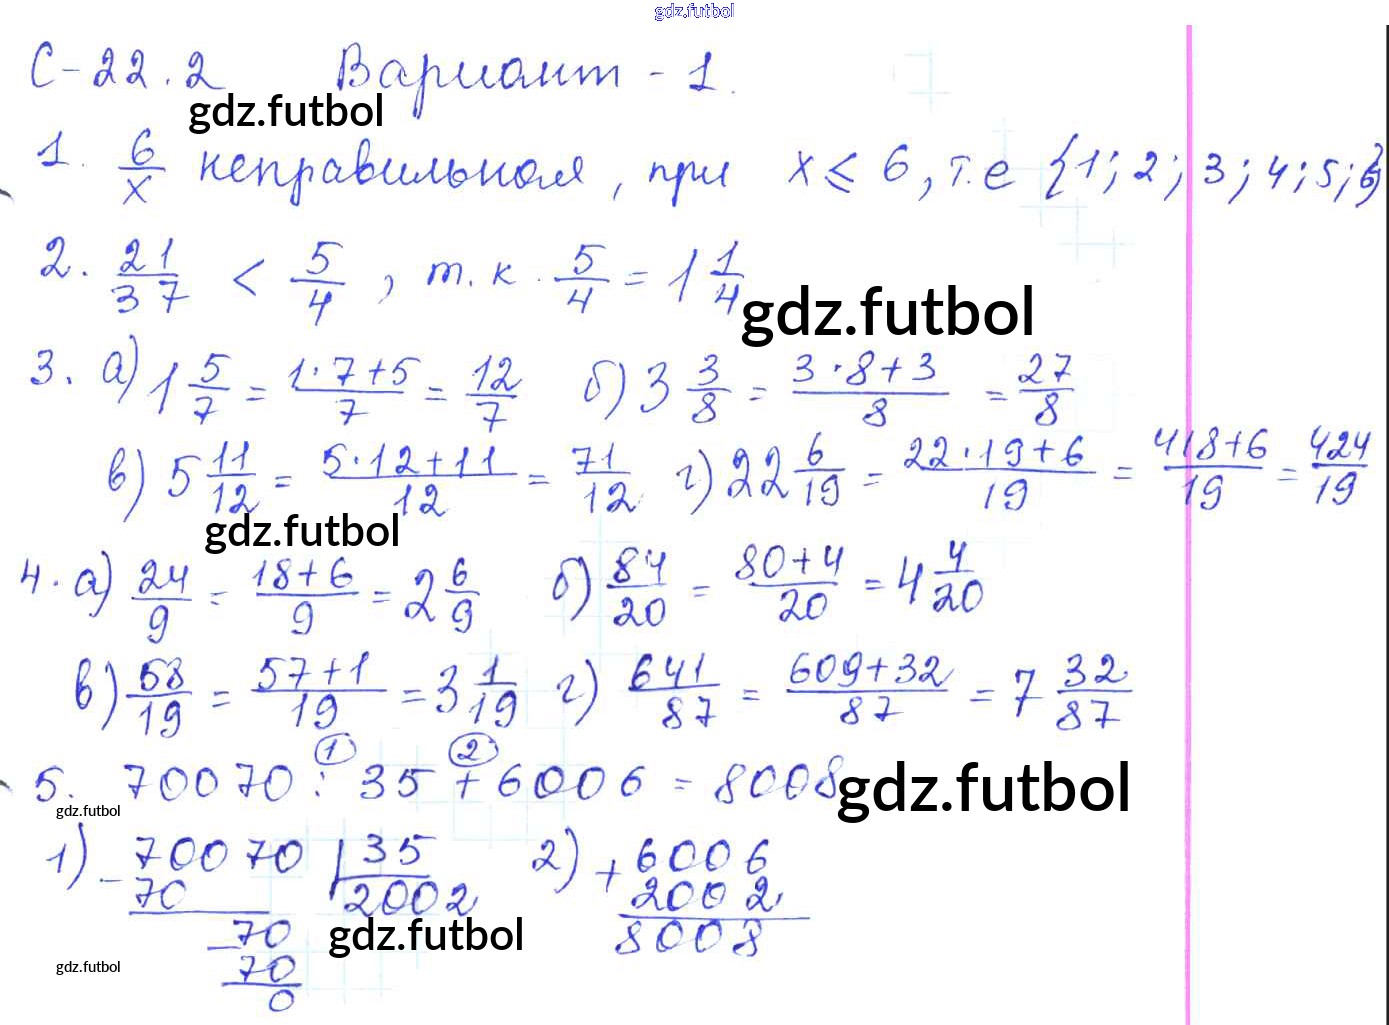 gdz.futbol
С-22.2 Вариант-1.
gdz.futbol
1. 6/x неправильная, при x ⩽ 6, т.е {1; 2; 3; 4; 5; 6}
2. 21/37 < 5/4, т.к. 5/4 = 1 1/4
gdz.futbol
3. а) 1 5/7 = (1·7+5)/7 = 12/7 б) 3 3/8 = (3·8+3)/8 = 27/8
в) 5 11/12 = (5·12+11)/12 = 71/12 г) 22 6/19 = (22·19+6)/19 = (418+6)/19 = 424/19
gdz.futbol
4. а) 24/9 = (18+6)/9 = 2 6/9 б) 84/20 = (80+4)/20 = 4 4/20
в) 58/19 = (57+1)/19 = 3 1/19 г) 641/87 = (609+32)/87 = 7 32/87
① ②
5. 70070 : 35 + 6006 = 8008
gdz.futbol
gdz.futbol
1) - 70070 | 35 2) + 6006
70 2002 2002
- 70 8008
gdz.futbol
70
gdz.futbol
0